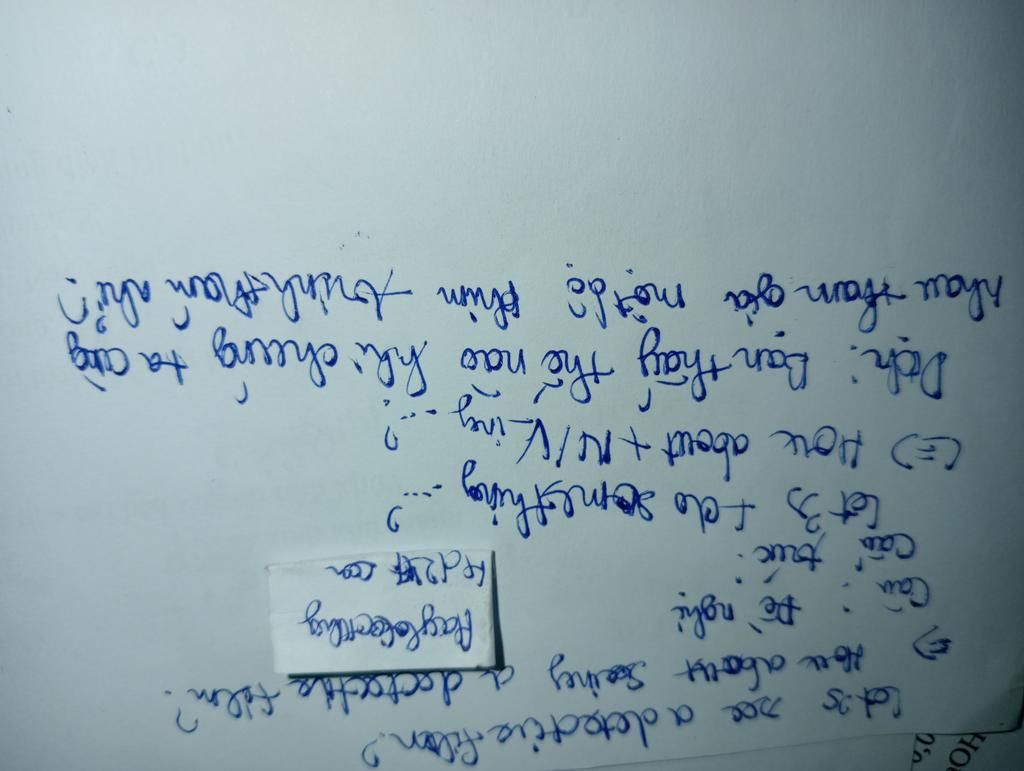 Let's see a detective film?
=> How about seeing a dectective film?
Câu : Đề nghị
Cấu trúc:
Let's + do something ...?
(=) How about + N/V-ing ...?
Dịch: Bạn thấy thế nào khi chúng ta cùng
nhau tham gia một bộ phim trinh thám nhỉ?
Hd247 con
HO